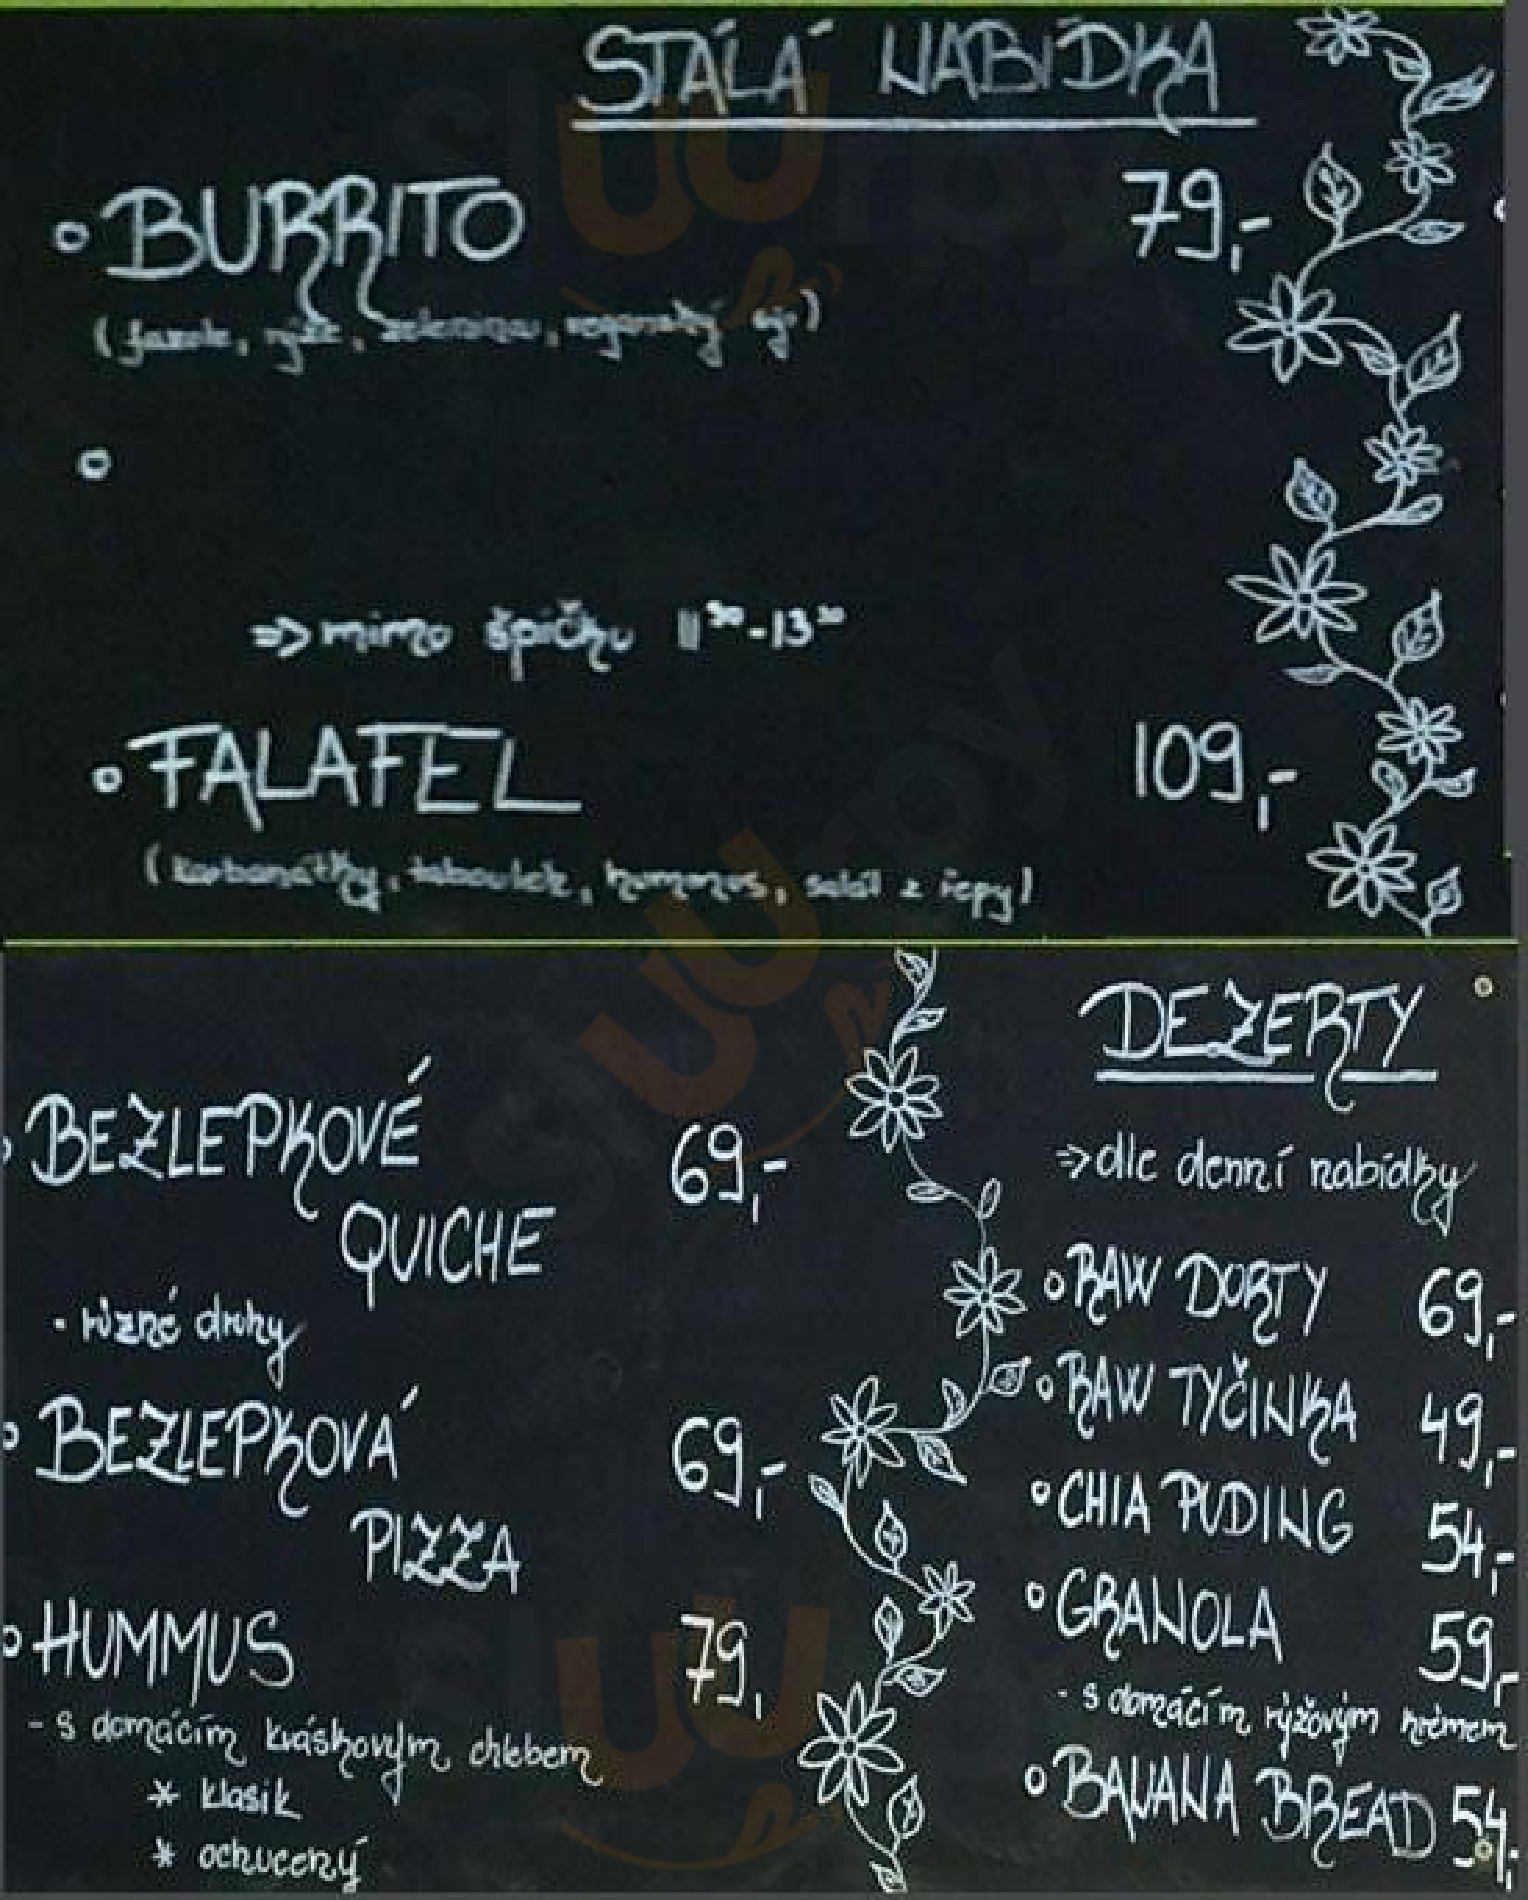 STÁLÁ NABÍDKA
BURRITO 79,-
(fazole, rýže, zelenina, veganský)
⇒ mimo špičku 11³⁰-13³⁰
FALAFEL 109,-
(karbanátky, tabouleh, hummus, salát z řepy)
BEZLEPKOVÉ 69,-
QUICHE
- různé druhy
BEZLEPKOVÁ 69,-
PIZZA
HUMMUS 79,
- s domácím kváskovým chlebem
* klasik
* ochucený
DEZERTY
⇒ dle denní nabídky
RAW DORTY 69,-
RAW TYČINKA 49,-
CHIA PUDING 54,-
GRANOLA 59,-
- s domácím rýžovým krémem
BANANA BREAD 54,-